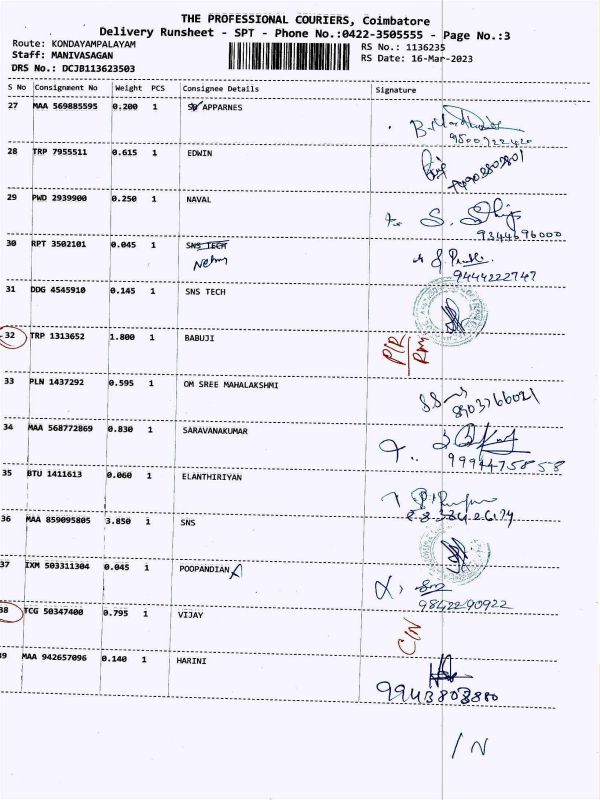 THE PROFESSIONAL COURIERS, Coimbatore
Delivery Runsheet - SPT - Phone No.:0422-3505555 - Page No.:3
Route: KONDAYAMPALAYAM
RS No.: 1136235
Staff: MANIVASAGAN
RS Date: 16-Mar-2023
DRS No.: DCJB113623503
S No Consignment No Weight PCS Consignee Details Signature
27 MAA 569885595 0.200 1 APPARNES
9500722420
28 TRP 7955511 0.615 1 EDWIN
29 PWD 2939900 0.250 1 NAVAL
9344696000
30 RPT 3502101 0.045 1 SNS TECH
9444222747
31 DDG 4545910 0.145 1 SNS TECH
32 TRP 1313652 1.800 1 BABUJI
33 PLN 1437292 0.595 1 OM SREE MAHALAKSHMI
8903766021
34 MAA 568772869 0.830 1 SARAVANAKUMAR
9994475858
35 BTU 1411613 0.060 1 ELANTHIRIYAN
36 MAA 859095805 3.850 1 SNS
37 IXM 503311304 0.045 1 POOPANDIAN
9842290922
38 TCG 50347400 0.795 1 VIJAY
C/N
39 MAA 942657096 0.140 1 HARINI
9943803880
/ N